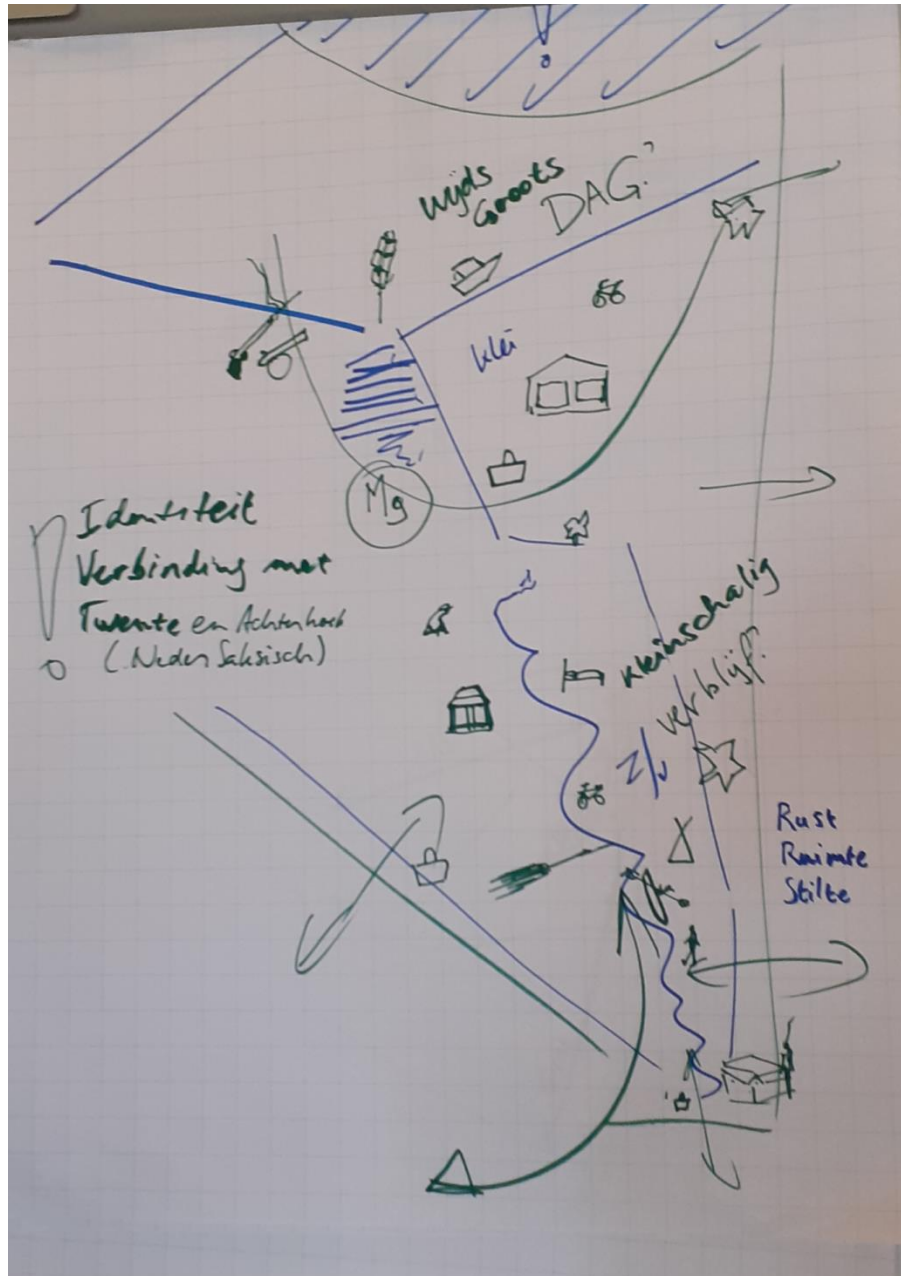 Wijds
Groots
DAG?
klei
Mg
Identiteit
Verbinding met
Twente en Achterhoek
(Neder Saksisch)
kleinschalig
verblijf?
Rust
Ruimte
Stilte